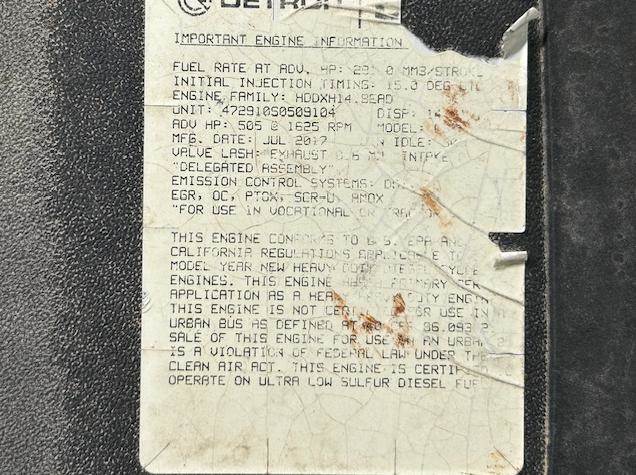 DETROIT
IMPORTANT ENGINE INFORMATION
FUEL RATE AT ADV. HP: MM3/STROKE
INITIAL INJECTION TIMING: 15.0 DEG
ENGINE FAMILY: HDDXH14.8EAD
UNIT: 472910S0509104 DISP:
ADV HP: 505 @ 1625 RPM MODEL:
MFG. DATE: JUL 2017 N IDLE:
VALVE LASH: EXHAUST INTAKE
"DELEGATED ASSEMBLY"
EMISSION CONTROL SYSTEMS:
EGR, OC, PTOX, SCR-U, AMOX
"FOR USE IN VOCATIONAL OR TRACTOR
THIS ENGINE CONFORMS TO U.S. EPA AND
CALIFORNIA REGULATIONS APPLICABLE TO
MODEL YEAR NEW HEAVY DUTY DIESEL CYCLE
ENGINES. THIS ENGINE HAS A PRIMARY
APPLICATION AS A HEAVY DUTY ENGIN
THIS ENGINE IS NOT CERTIFIED FOR USE IN
URBAN BUS AS DEFINED AT 40 CFR 86.093 2
SALE OF THIS ENGINE FOR USE IN AN URBAN
IS A VIOLATION OF FEDERAL LAW UNDER THE
CLEAN AIR ACT. THIS ENGINE IS CERTIFIED
OPERATE ON ULTRA LOW SULFUR DIESEL FUEL